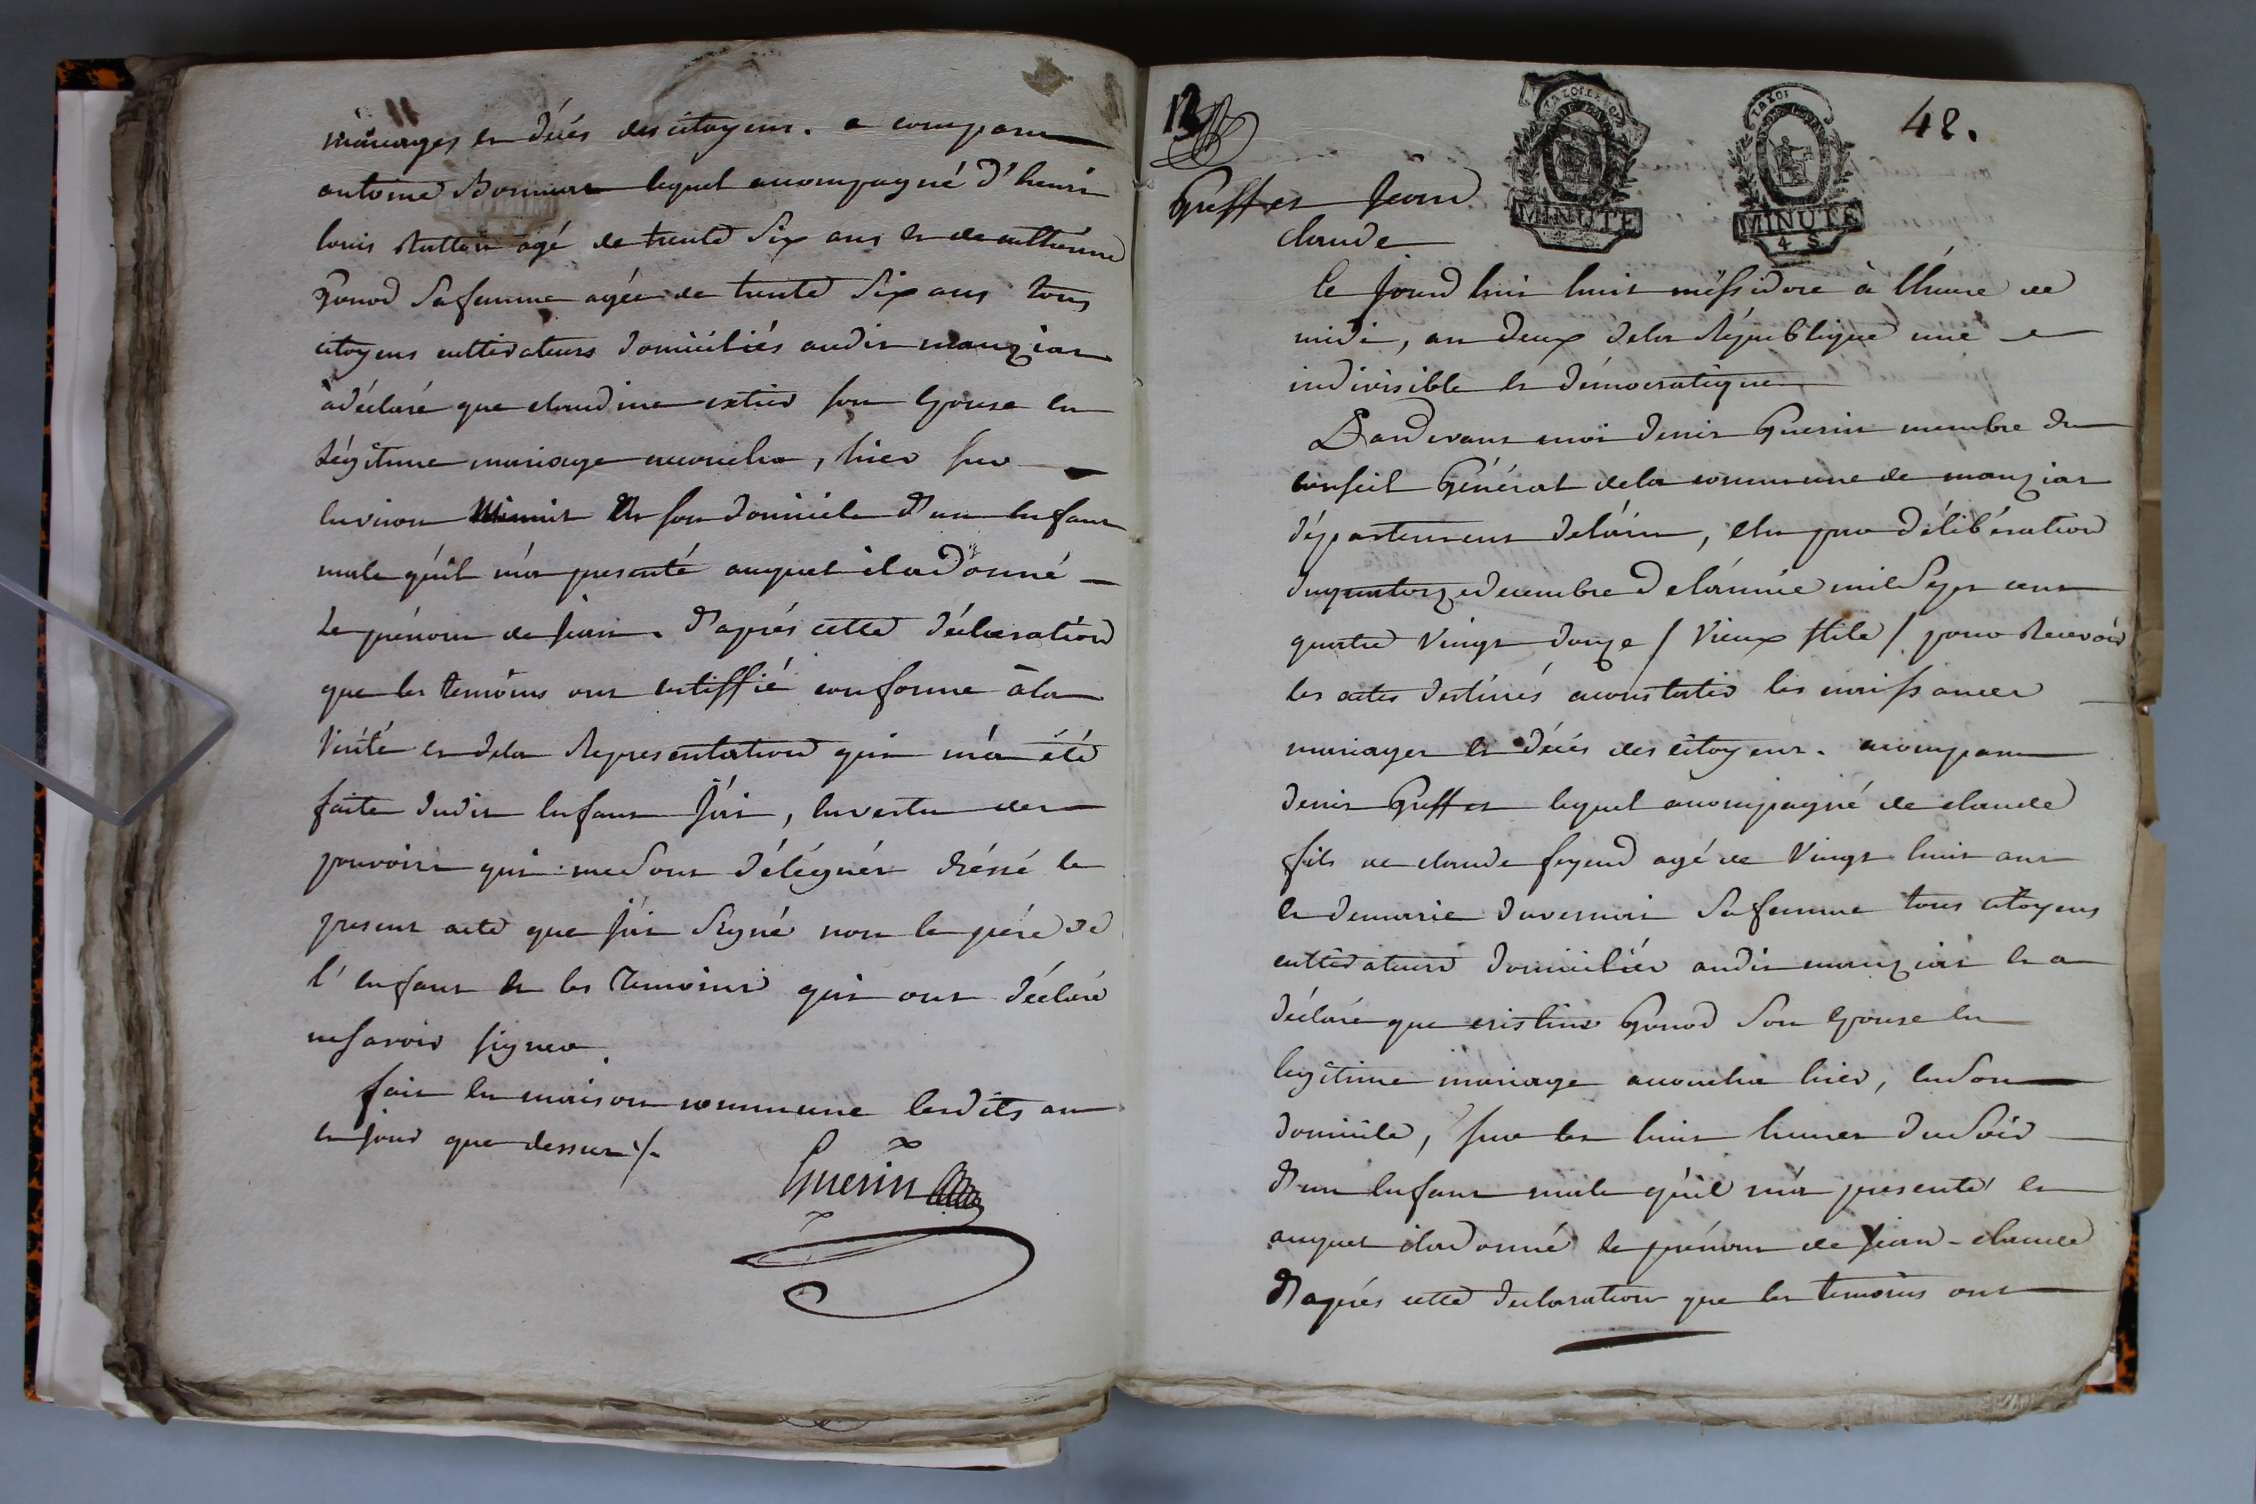 11
mariages et décés des citoyens. a comparu
antoine Bonnure lequel accompagné d'henri
louis agé de trente Six ans et de catherine
Gonod Sa femme agée de trente Six ans tous
citoyens cultivateurs domiciliés audit manziat
a déclaré que claudine extier son Epouse en
Légitime mariage accoucha, hier sur
Environ Minuit En son domicile d'un Enfant
male qu'il m'a presenté auquel il a donné
Le prénom de jean. d'aprés cette déclaration
que les temoins ont certiffié conforme à la
Vérité et de la Representation qui m'a été
faite dudit Enfant J'ai, En vertu des
pouvoirs qui me Sont délégués dréssé le
present acte que j'ai Signé non le pére de
l'enfant et les Temoins qui ont déclaré
ne savoir signer.
fait En maison commune Lesdits an
et jour que dessus ./.
Guerin
12
42.
MINUTE
MINUTE
4 S
Greffet Jean
claude
Ce jourd'hui huit méssidore à L'heure de
midi, an deux de la République une
indivisible et démocratique
Pardevant moi denis Guerin membre du
conseil Général de la commune de manziat
département de l'ain, élu par délibération
du quatorze decembre de l'année mil Sept cent
quatre Vingt douze / Vieux stile / pour Recevoir
les actes destinés a constater les naissances
mariages et décés des citoyens. a comparu
denis Greffet lequel accompagné de claude
fils de claude feyeud agé de Vingt huit ans
et de marie duvernai Sa femme tous citoyens
cultivateurs domiciliés audit manziat et a
déclaré que cristine Gonod Son Epouse En
legitime mariage accoucha hier, En Son
domicile, sur les huit heures du Soir
d'un Enfant male qu'il m'a presenté et
auquel il a donné le prénom de Jean-claude
d'aprés cette declaration que les temoins ont